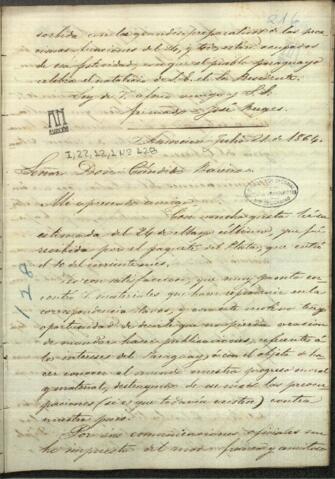 216
surtido con los grandes preparativos de las proc
simas funciones del 24, y todos estan ocupados
de esa festividad, con que el pueblo paraguayo
celebra el natalicio de S. E. el Sr. Presidente.
Soy de V. afmo amigo y S. S.
firmado José Berges.
Asuncion Julio 21 de 1864.
I,22,12,1 Nº 128
Señor Don Cándido Bareiro.
Mi apreciado amigo:
Con mucho gusto he leido
estimada del 24 de Mayo último, que fué
recibida por el paquete del Plata, que entró
el 10 del corriente.
128
Veo con satisfaccion, que muy pronto en
contró V. materiales que han
correspondencia Havas, y con este motivo tengo
oportunidad de decirle que no pierda ocasion
de mandar hacer publicaciones, referentes á
los intereses del Paraguay, ócia el objeto de ha
cer conocer al mundo nuestro progreso moral
y material, destruyendo de ese modo las preocu
paciones (si es que todavia existen) contra
nuestro pais.
Por sus comunicaciones oficiales me
he impuesto del modo franco y amistoso